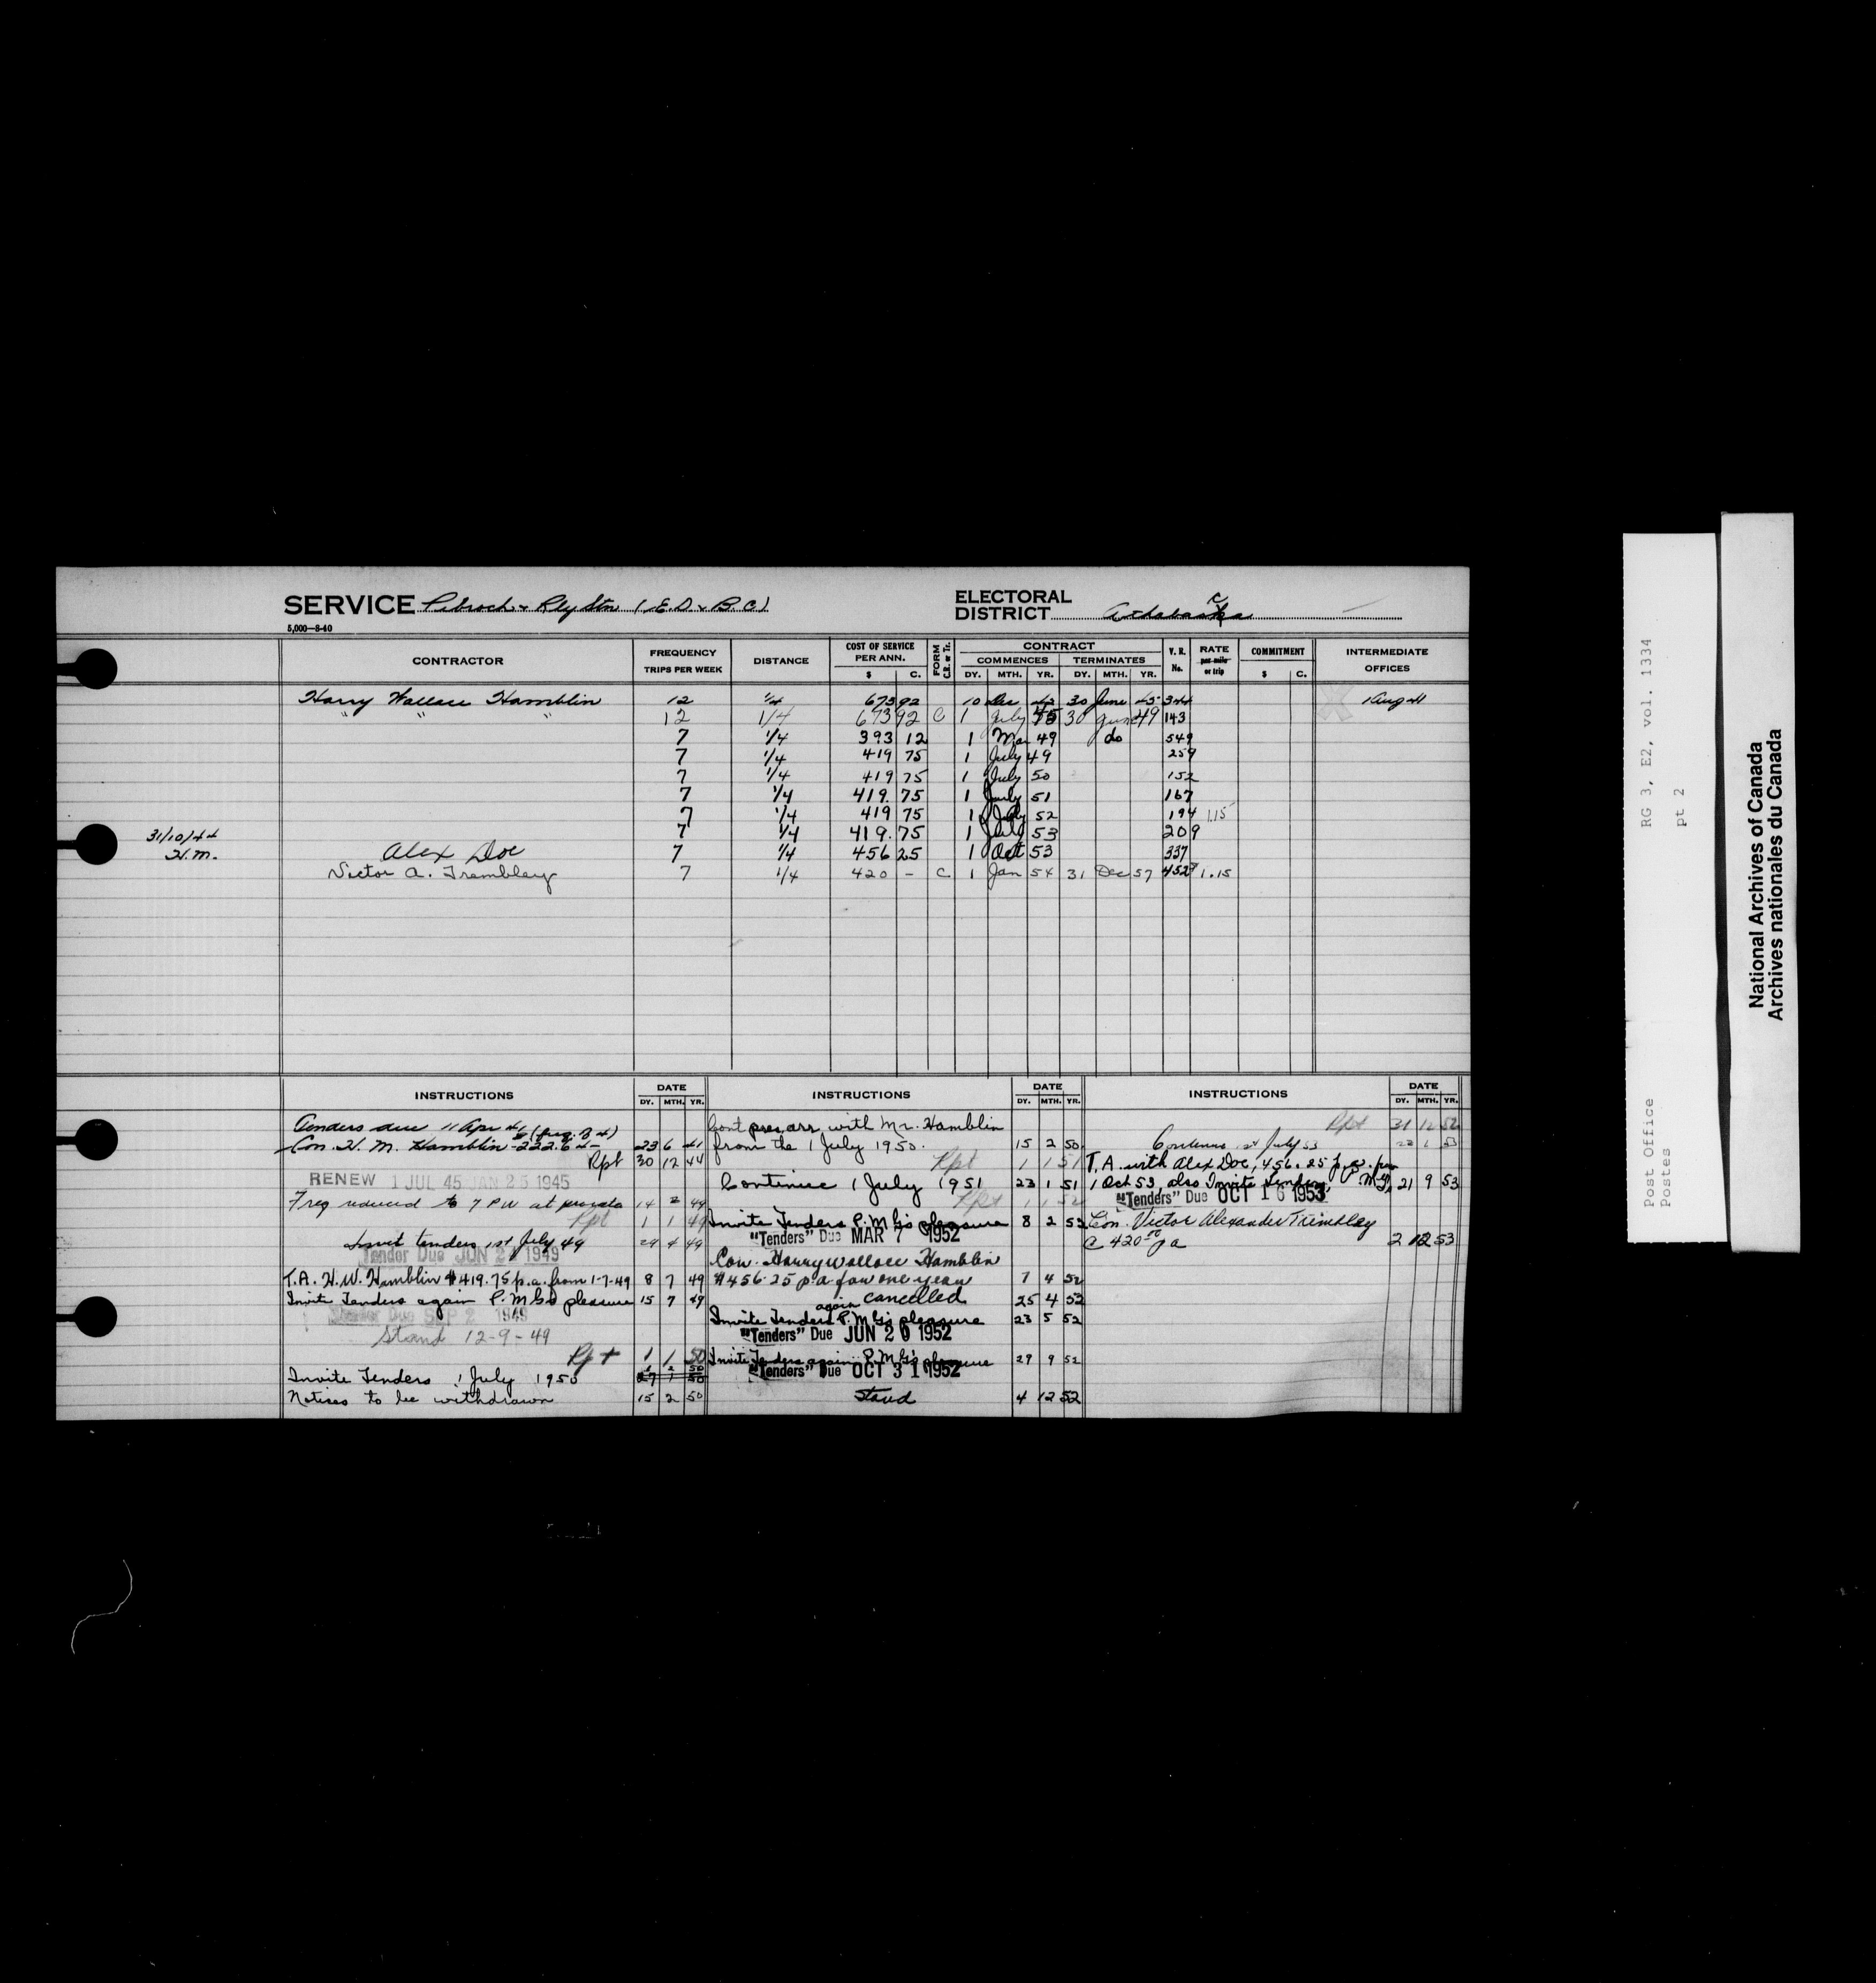 SERVICE Pibroch & Rly Stn (E.D. & B.C.)
5,000—8-40
ELECTORAL DISTRICT Athabaska c
CONTRACTOR FREQUENCY TRIPS PER WEEK DISTANCE COST OF SERVICE PER ANN. $ C. FORM C.R. or Tr. CONTRACT COMMENCES DY. MTH. YR. TERMINATES DY. MTH. YR. V.R. No. RATE per mile or trip COMMITMENT $ C. INTERMEDIATE OFFICES
Harry Wallace Hamblin 12 1/4 673 92 10 Dec 30 June 45 344
" " " 12 1/4 673 92 C 1 July 45 30 June 49 143
7 1/4 393 12 1 Mar 49 do 549
7 1/4 419 75 1 July 49 259
7 1/4 419 75 1 July 50 152
7 1/4 419.75 1 July 51 167
7 1/4 419 75 1 July 52 194 1.15
31/10/44 7 1/4 419.75 1 July 53 209
H.M. Alex Doe 7 1/4 456 25 1 Oct 53 337
Victor A. Tremblay 7 1/4 420 - C 1 Jan 54 31 Dec 57 452 1.15
INSTRUCTIONS DATE DY. MTH. YR.
Tenders due 11 Apr 41 (freq. )
Con. H. M. Hamblin 222.64 23 6 41
Rpt 30 12 44
RENEW 1 JUL 45 JAN 25 1945
Freq reduced to 7 P W at prorata 14 2 49
Rpt 1 1 49
Invit tenders 1st July 49 29 4 49
Tender Due JUN 21 1949
T.A. H.W. Hamblin $419.75 p.a. from 1-7-49 8 7 49
Invite Tenders again P.M.G's pleasure 15 7 49
Tender Due SEP 2 1949
Stand 12-9-49
Rpt 1 1 50
Invite Tenders 1 July 1950
Notices to be withdrawn 15 2 50
INSTRUCTIONS DATE DY. MTH. YR.
Cont pres. arr. with Mr. Hamblin
from the 1 July 1950. 15 2 50
Rpt 1 1 51
Continue 1 July 1951 23 1 51
Rpt 1 1 52
Invite Tenders P.M.G's pleasure 8 2 52
"Tenders" Due MAR 7 1952
Con. Harry Wallace Hamblin
$456.25 p.a for one year 7 4 52
cancelled 25 4 52
again
Invite Tenders P.M.G's pleasure 23 5 52
"Tenders" Due JUN 20 1952
Invite Tenders again P.M.G's pleasure 29 9 52
"Tenders" Due OCT 31 1952
Stand 4 12 52
INSTRUCTIONS DATE DY. MTH. YR.
Rpt 31 12 52
Continue 1st July 53 22 1 53
T.A. with Alex Doe, 456.25 p.a. from
1 Oct 53, also Invite Tenders, 21 9 53
"Tenders" Due OCT 16 1953
Con. Victor Alexander Tremblay
@ 420.00 pa 2 12 53
RG 3, E2, vol. 1334
pt 2
Post Office
Postes
National Archives of Canada
Archives nationales du Canada